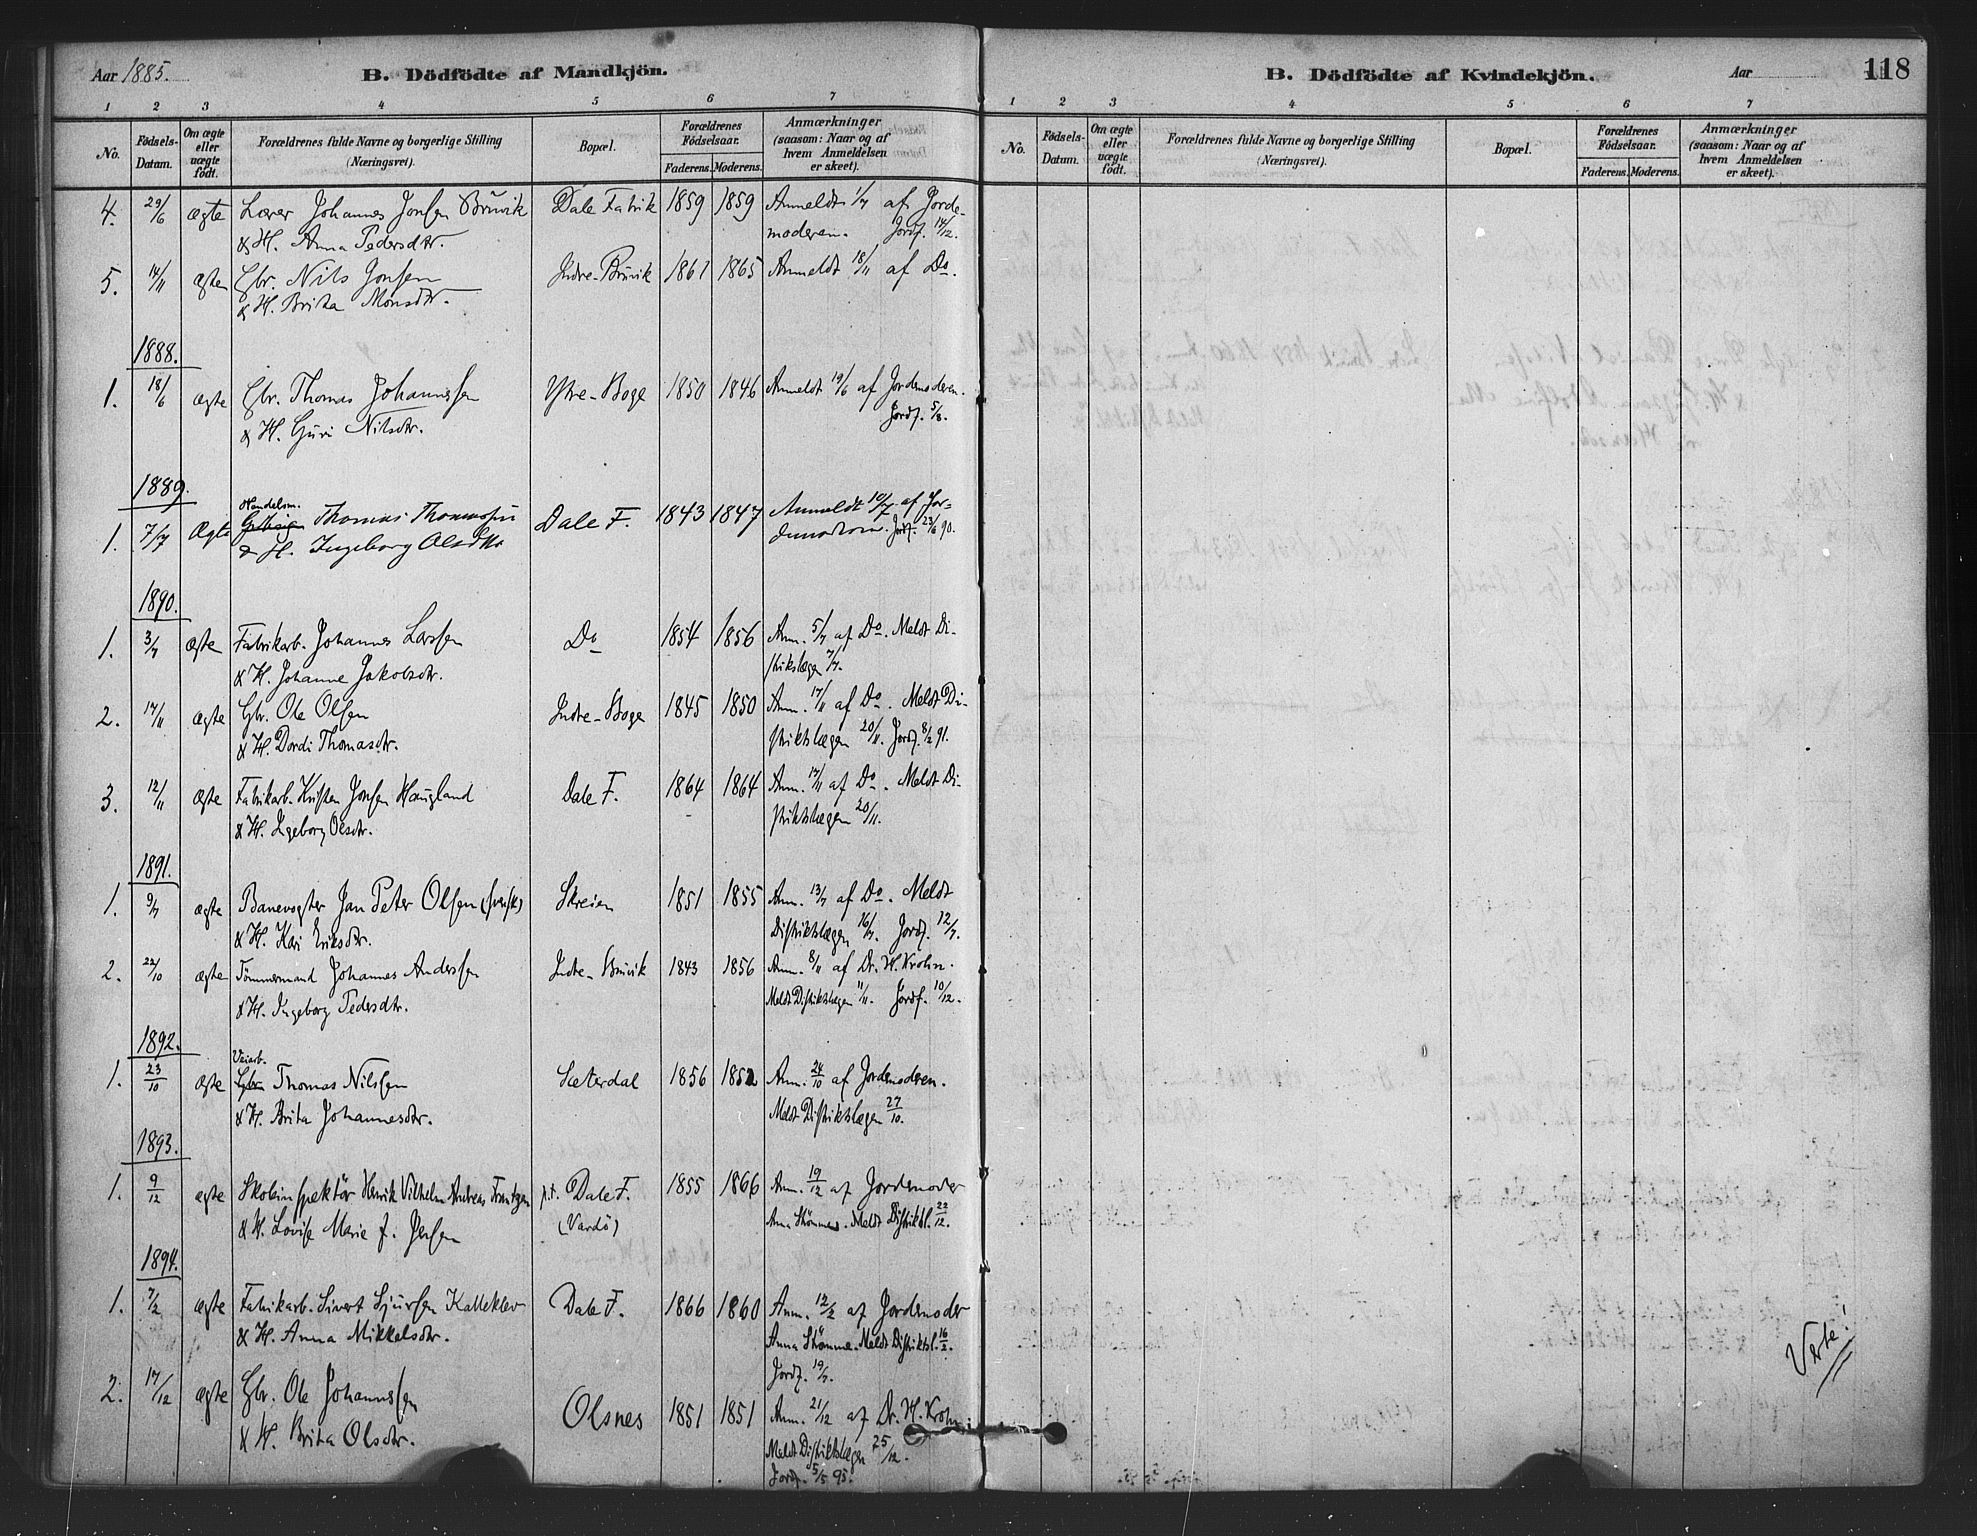 Aar 1885.
B. Dödfödte af Mandkjön.
1 2 3 4 5 6 7
No.
Födsels-Datum.
Om ægte eller uægte födt.
Forældrenes fulde Navne og borgerlige Stilling (Næringsvei).
Bopæl.
Forældrenes Födselsaar.
Faderens. Moderens.
Anmærkninger (saasom: Naar og af hvem Anmeldelsen er skeet).
4. 29/6 ægte Lærer Johannes Jonsen Bruvik Dale Fabrik 1859 1859 Anmeldt 1/7 af Jorde-
& H. Anna Pedersdtr. moderen. Jordf. 14/12.
5. 14/11 ægten Gbr. Nils Jonsen Indre-Bruvik 1861 1865 Anmeldt 18/11 af Do.
& H. Brita Monsdtr.
1888.
1. 18/6 ægte Gbr. Thomas Johannessen Ytre-Boge 1850 1846 Anmeldt 19/6 af Jordemoderen.
& H. Guri Nilsdtr. Jordf. 5/8.
1889.
Handelsm.
1. 7/7 Ægte Thomas Thomassen Dale F. 1843 1847 Anmeldt 10/7 af Jor-
& H. Ingeborg Olsdtr demoderen. Jordf. 23/6 90.
1890.
1. 3/7 ægte Fabrikarb. Johannes Larssen Do 1854 1856 Anm. 5/7 af Do. Meldt Di-
& H. Johanne Jakobsdtr. strikslægen 7/7.
2. 14/11 ægte Gbr. Ole Olsen Indre-Boge 1845 1850 Anm. 17/11 af Do. Meldt Di-
& H. Dordi Thomasdtr. striktslægen 20/11. Jordf. 8/2 91.
3. 12/11 ægte Fabrikarb. Kristen Jonsen Haugland Dale F. 1864 1864 Anm. 17/11 af Do. Meldt Di-
& H. Ingeborg Olsdtr. striktslægen 20/11.
1891.
1. 9/7 ægte Banevogter Jan Peter Olsen (svensk) Skreien 1851 1855 Anm. 13/7 af Do. Meldt
& H. Kari Eriksdtr. Distriktslægen 16/7. Jordf. 12/7.
2. 22/10 ægte Tömmermand Johannes Anderssen Indre-Bruvik 1843 1856 Anm. 8/11 af Dr. H. Krohn.
& H. Ingeborg Pedersdtr. Meldt Distriktslægen 11/11. Jordf. 10/12.
1892.
Veiarb.
1. 23/10 ægte Gbr. Thomas Nilssen Sæterdal 1856 1852 Anm. 24/10 af Jordemoderen.
& H. Brita Johannesdtr. Meldt Distriktslægen 27/10.
1893.
1. 9/12 ægte Skolinspektör Henrik Vilhelm Andreas Frantzen p.t. Dale F. 1855 1866 Anm. 19/12 af Jordemoder
& H. Lovise Marie f. Jensen (Vardö) Anna Stömme. Meldt Distriktsl. 22/12.
1894.
1. 7/2 ægte Fabrikarb. Sivert Sjursen Kalleklev Dale F. 1866 1860 Anm. 12/2 af Jordemoder
& H. Anna Mikkelsdtr. Anna Stömme. Meldt Distriktsl. 16/2.
Jordf. 19/7.
2. 17/12 ægte Gbr. Ole Johannessen Olsnes 1851 1851 Anm. 21/12 af Dr. H. Krohn
& H. Brita Olsdtr. Meldt Distriktslægen 25/12.
Jordf. 5/5 95.
B. Dödfödte af Kvindekjön.
Aar
118
1 2 3 4 5 6 7
No.
Födsels-Datum.
Om ægte eller uægte födt.
Forældrenes fulde Navne og borgerlige Stilling (Næringsvei).
Bopæl.
Forældrenes Födselsaar.
Faderens. Moderens.
Anmærkninger (saasom: Naar og af hvem Anmeldelsen er skeet).
Verte!